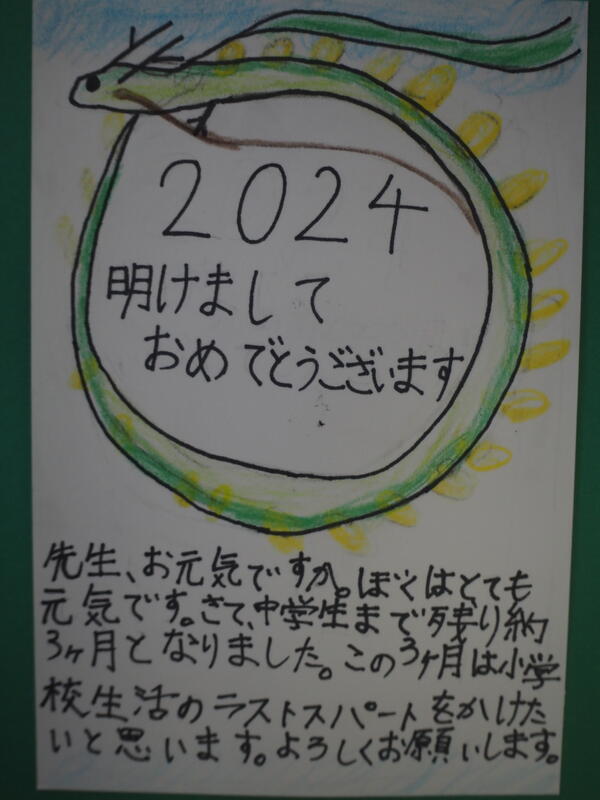 2024
明けまして
おめでとうございます
先生、お元気ですか。ぼくはとても
元気です。さて、中学生まで残り約
3ヶ月となりました。この3ヶ月は小学
校生活のラストスパートをかけた
いと思います。よろしくお願いします。